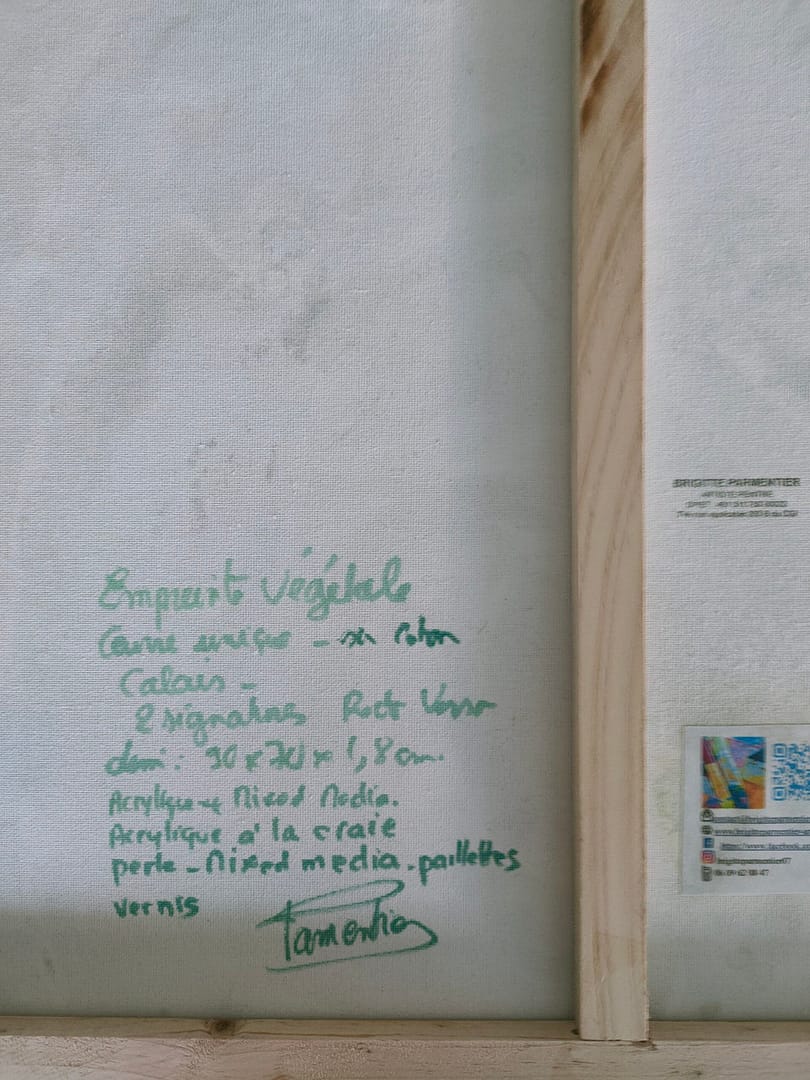 Empreinte végétale
Oeuvre unique - sur coton
Calais -
2 signatures Recto Verso
dim: 90 x 70 x 1,8 cm.
Acrylique et Mixed Media.
Acrylique à la craie
perle - Mixed media - paillettes
vernis
Parmentier
BRIGITTE PARMENTIER
ARTISTE PEINTRE
brigitteparmentier07
06 09 62 08 47